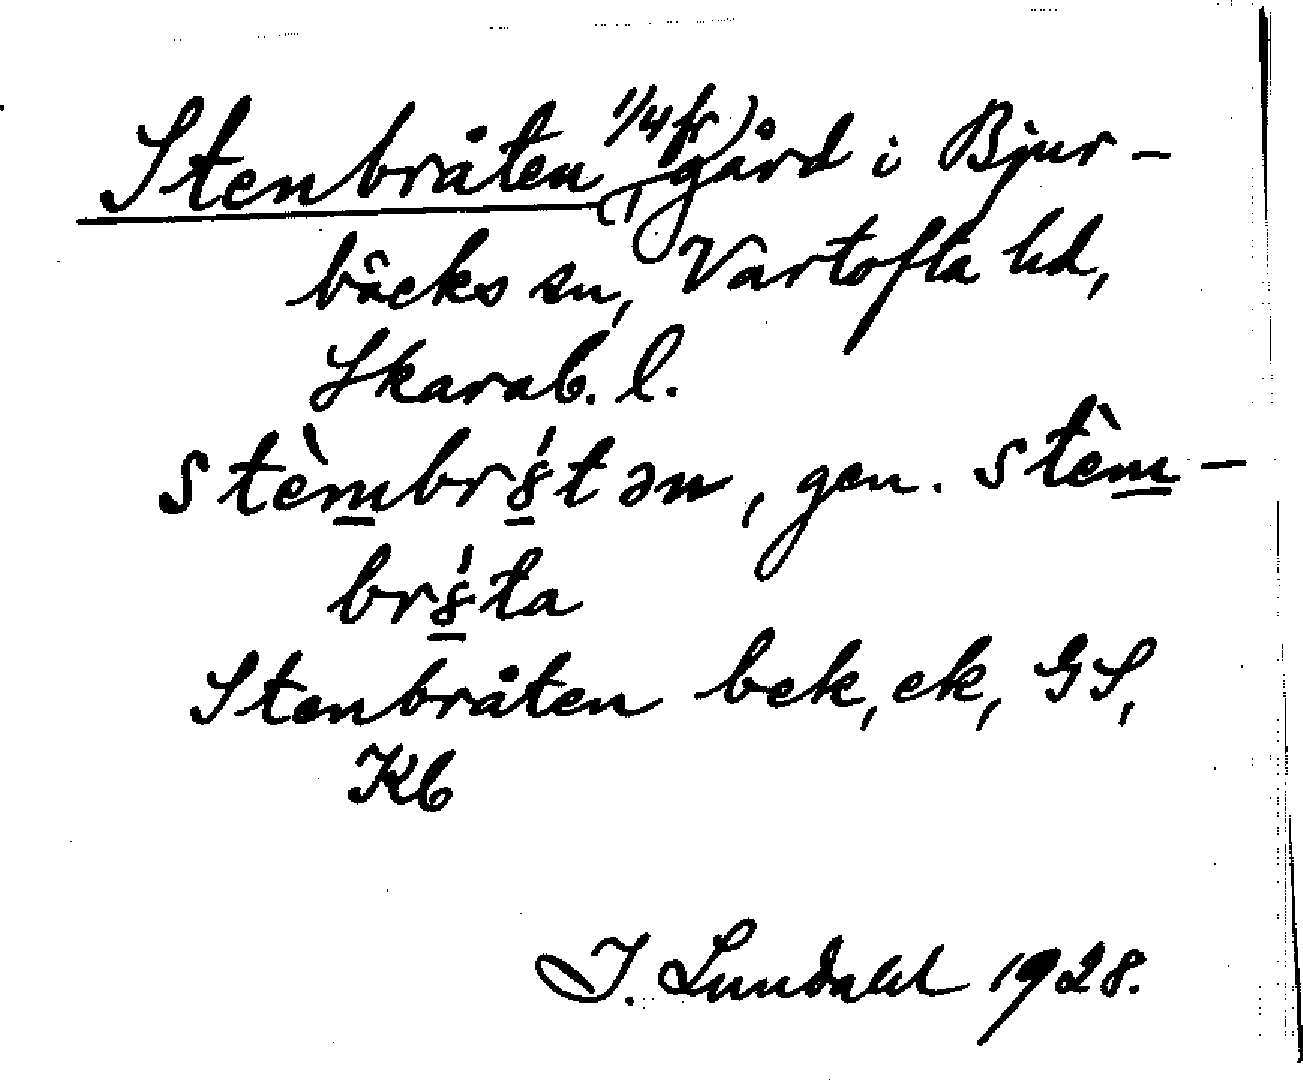 Stenbråten (1/4 fr) gård i Bjur-
bäcks sn, Vartofta hd,
Skarab. l.
stèmbrɤ́tən, gen. stèm-
brɤ́ta
Stenbråten bek, ek, GS,
Kb
I. Lundahl 1928.